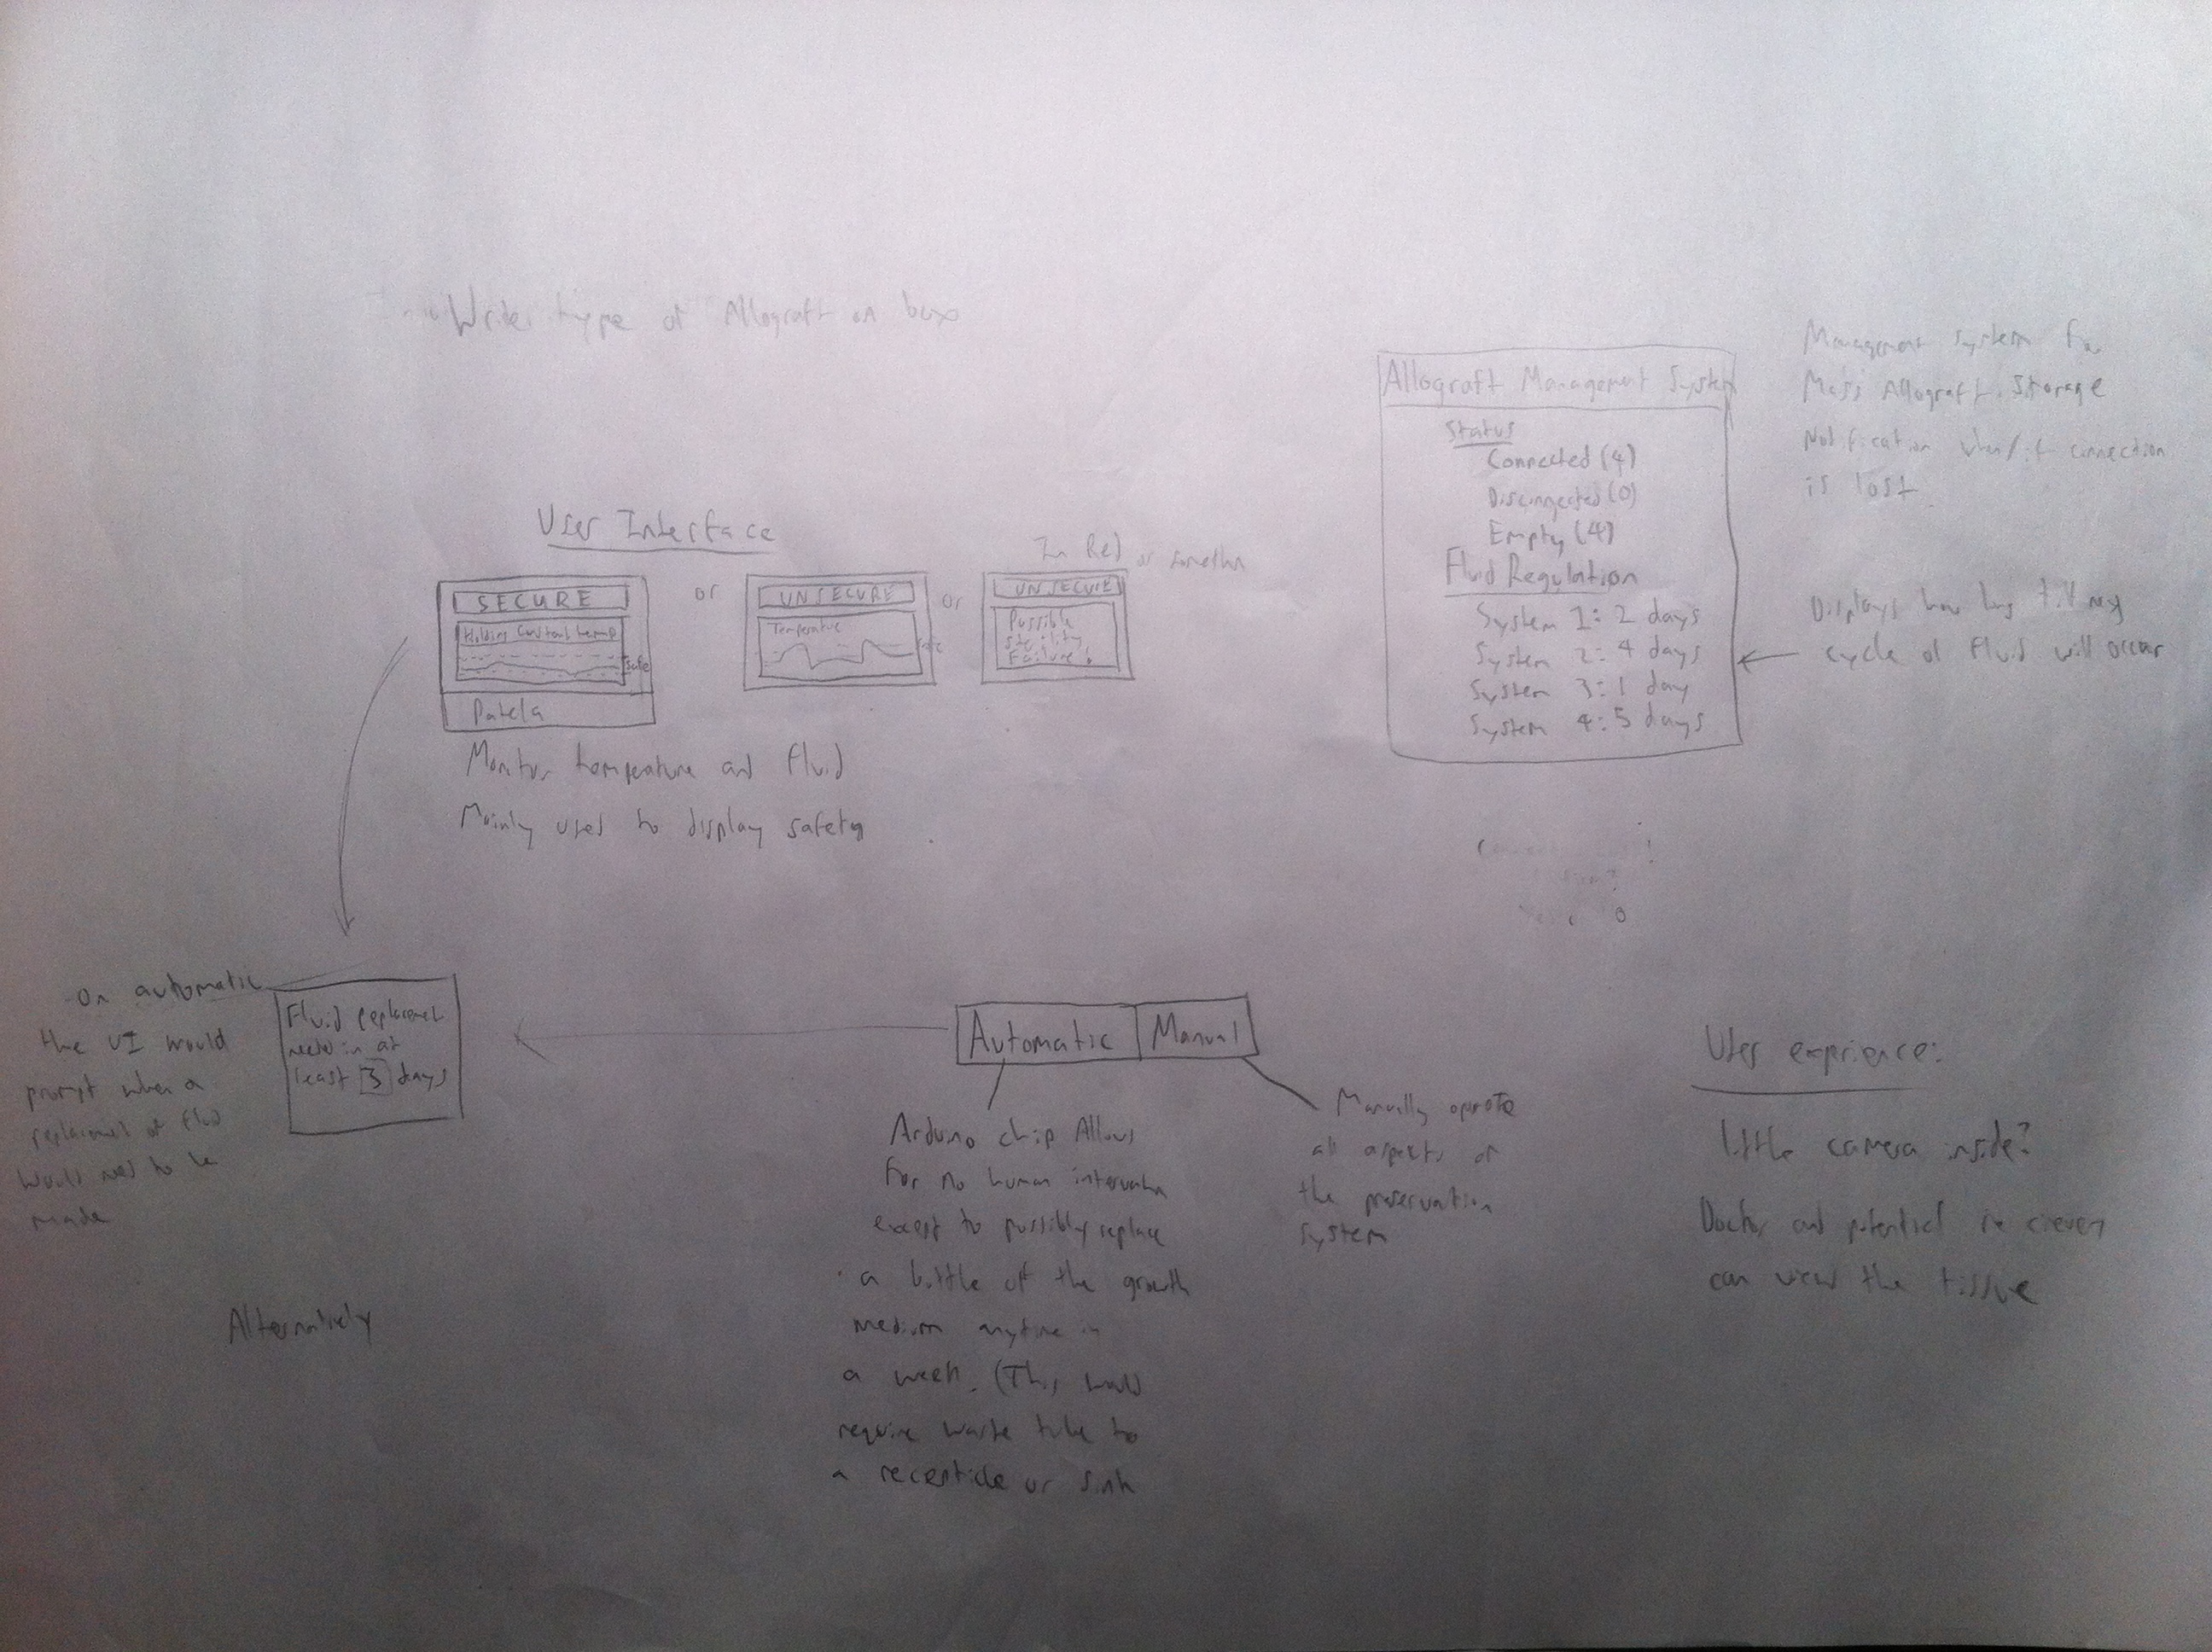 Write type of Allograft on box
User Interface
SECURE
Holding Constant temp
safe
Patela
or
UNSECURE
Temperature
safe
or
In Red or somethin
UNSECURE
Possible
Sterility
Failure!
Monitor temperature and fluid
Mainly used to display safety
Allograft Management System
Status
Connected (4)
Disconnected (0)
Empty (4)
Fluid Regulation
System 1: 2 days
System 2: 4 days
System 3: 1 day
System 4: 5 days
Management system for
Mass Allograft Storage
Notification when/if connection
is lost
Displays how long till next
cycle of fluid will occur
On automatic
the UI would
prompt when a
replacement of fluid
would need to be
made
Fluid replacement
need in at
least 3 days
Alternatively
Automatic
Manual
Arduino chip Allows
for no human intervention
except to possibly replace
a bottle of the growth
medium anytime in
a week. (This would
require waste tube to
a recepticle or sink
Manually operate
all aspects of
the preservation
system
User exprience:
little camera inside?
Doctor and potential reciever
can view the tissue